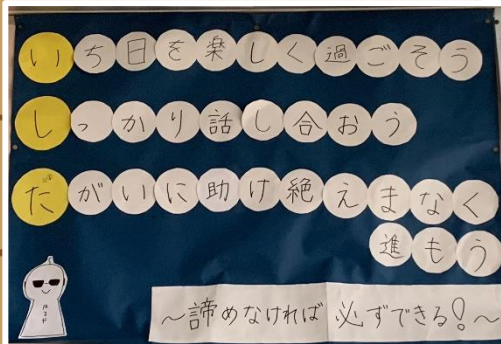 いち日を楽しく過ごそう
しっかり話し合おう
だがいに助け絶えまなく
進もう
～諦めなければ必ずできる!～